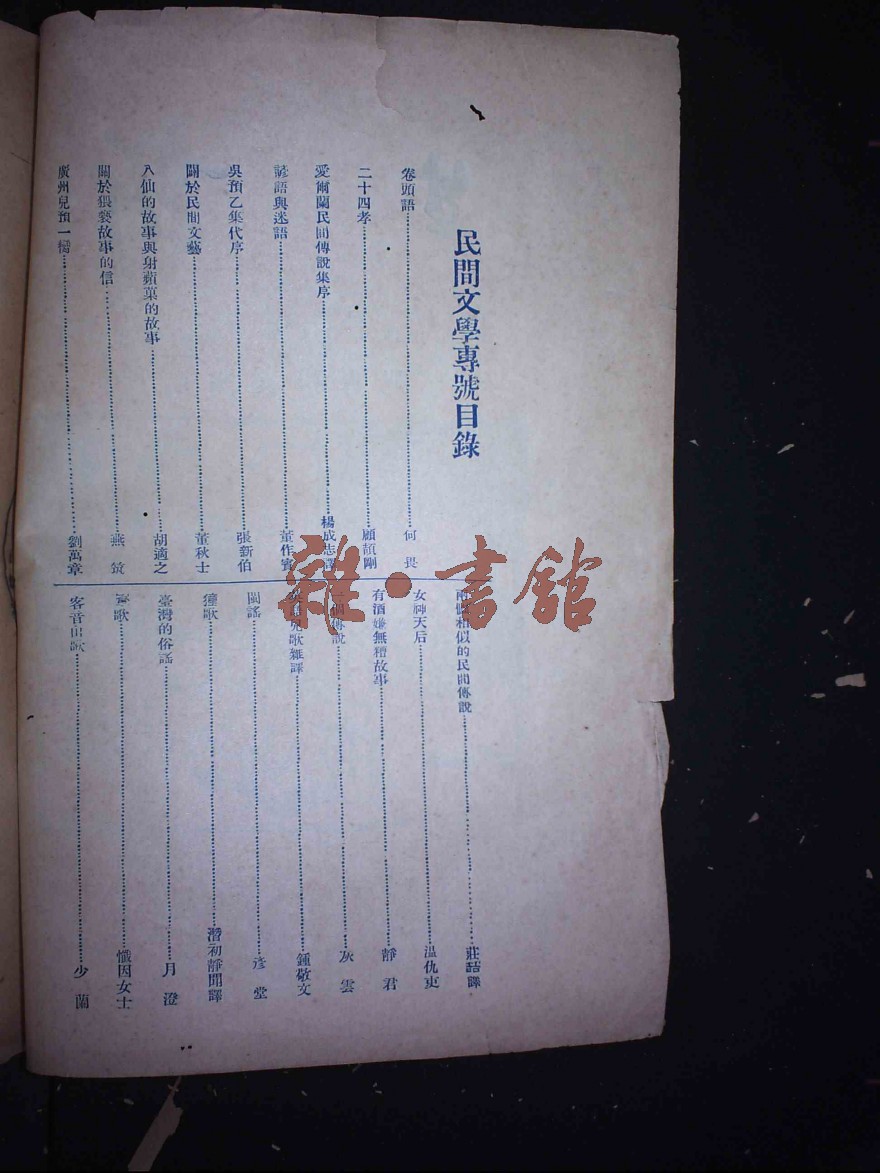 民間文學專號目錄
卷頭語……何畏
二十四孝……顧頡剛
愛爾蘭民間傳說集序……楊成志譯
諺語與迷語……董作賓
吳預乙集代序……張新伯
關於民間文藝……董秋士
八仙的故事與射蘋菓的故事……胡適之
關於猥褻故事的信……燕
廣州兒預一臠……劉萬章
兩個相似的民間傳說……莊喆譯
女神天后……溫仇吏
有酒嫌無糟故事……靜君
個傳說……灰雲
兒歌雜譯……鍾敬文
閩謠……彥堂
獞歌……潛初靜聞譯
臺灣的俗謠……月澄
歌……懺因女士
客音山歌……少蘭
雜·書館